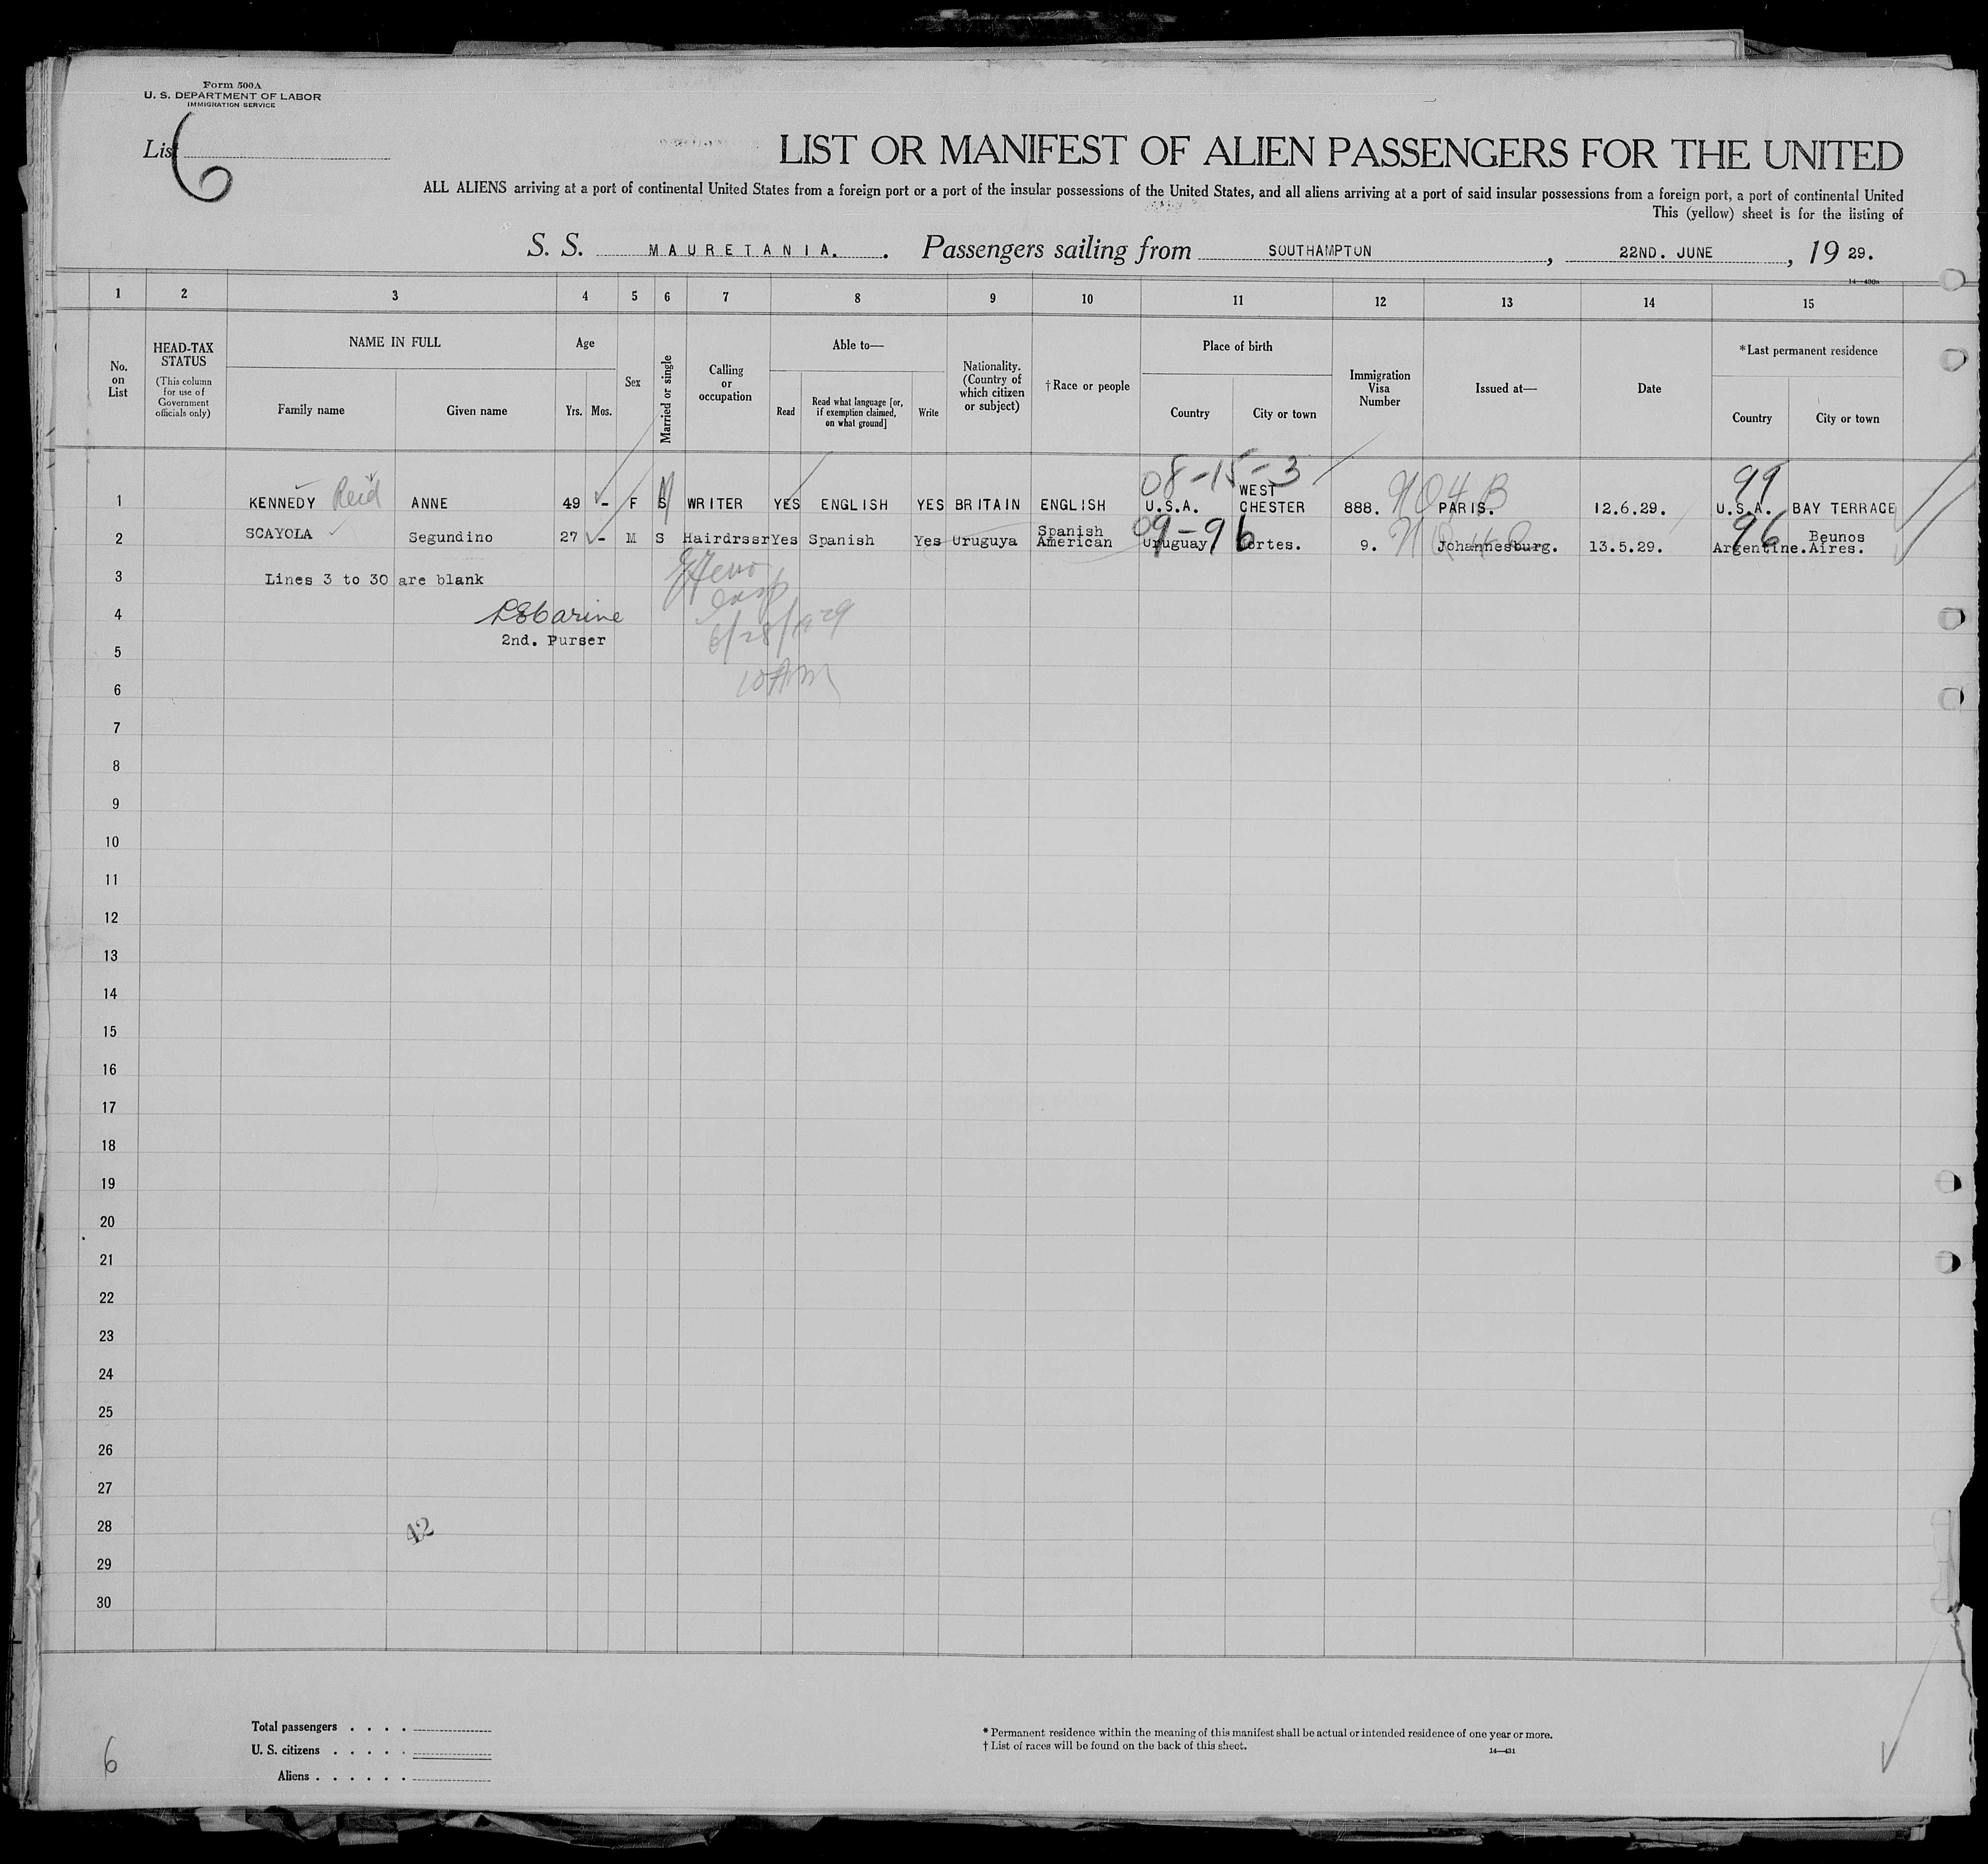 Form 500A
U. S. DEPARTMENT OF LABOR
IMMIGRATION SERVICE
List 6
LIST OR MANIFEST OF ALIEN PASSENGERS FOR THE UNITED
ALL ALIENS arriving at a port of continental United States from a foreign port or a port of the insular possessions of the United States, and all aliens arriving at a port of said insular possessions from a foreign port, a port of continental United
This (yellow) sheet is for the listing of
S. S. MAURETANIA. . Passengers sailing from SOUTHAMPTON , 22ND. JUNE , 19 29.
14—430a
1 2 3 4 5 6 7 8 9 10 11 12 13 14 15
No. on List
HEAD-TAX STATUS
(This column for use of Government officials only)
NAME IN FULL
Family name Given name
Age
Yrs. Mos.
Sex
Married or single
Calling or occupation
Able to—
Read
Read what language [or, if exemption claimed, on what ground]
Write
Nationality. (Country of which citizen or subject)
†Race or people
Place of birth
Country City or town
Immigration Visa Number
Issued at—
Date
*Last permanent residence
Country City or town
08-15-3 99
1 KENNEDY Reid ANNE 49 - F S M WRITER YES ENGLISH YES BRITAIN ENGLISH U.S.A. WEST CHESTER 888. PARIS. 12.6.29. U.S.A. BAY TERRACE
09-96 96
2 SCAYOLA Segundino 27 - M S Hairdrssr Yes Spanish Yes Uruguya Spanish American Uruguay Cortes. 9. Johannesburg. 13.5.29. Argentine. Beunos Aires.
3 Lines 3 to 30 are blank
4
2nd. Purser
6/28/1929
5
10 AM
6
7
8
9
10
11
12
13
14
15
16
17
18
19
20
21
22
23
24
25
26
27
28
42
29
30
Total passengers . . . .
U. S. citizens . . . . .
Aliens . . . . . .
6
* Permanent residence within the meaning of this manifest shall be actual or intended residence of one year or more.
† List of races will be found on the back of this sheet.
14—431